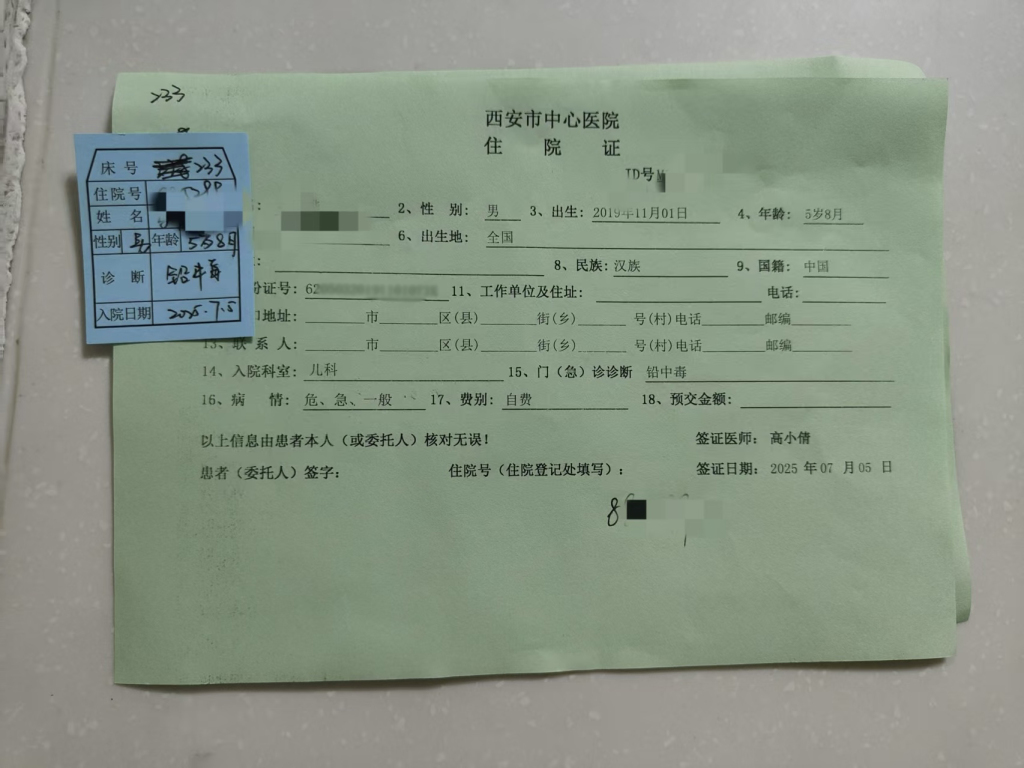 233
西安市中心医院
住 院 证
ID号
床号 233
住院号
姓名
性别 男 年龄 5岁8月
诊断 铅中毒
入院日期 2025.7.5
2、性 别: 男 3、出生: 2019年11月01日 4、年龄: 5岁8月
6、出生地: 全国
8、民族: 汉族 9、国籍: 中国
份证号: 62 11、工作单位及住址: 电话:
口地址: 市 区(县) 街(乡) 号(村)电话 邮编
13、联 系 人: 市 区(县) 街(乡) 号(村)电话 邮编
14、入院科室: 儿科 15、门(急)诊诊断 铅中毒
16、病 情: 危、急、一般 17、费别: 自费 18、预交金额:
以上信息由患者本人(或委托人)核对无误! 签证医师: 高小倩
患者(委托人)签字: 住院号(住院登记处填写): 签证日期: 2025 年 07 月 05 日
8